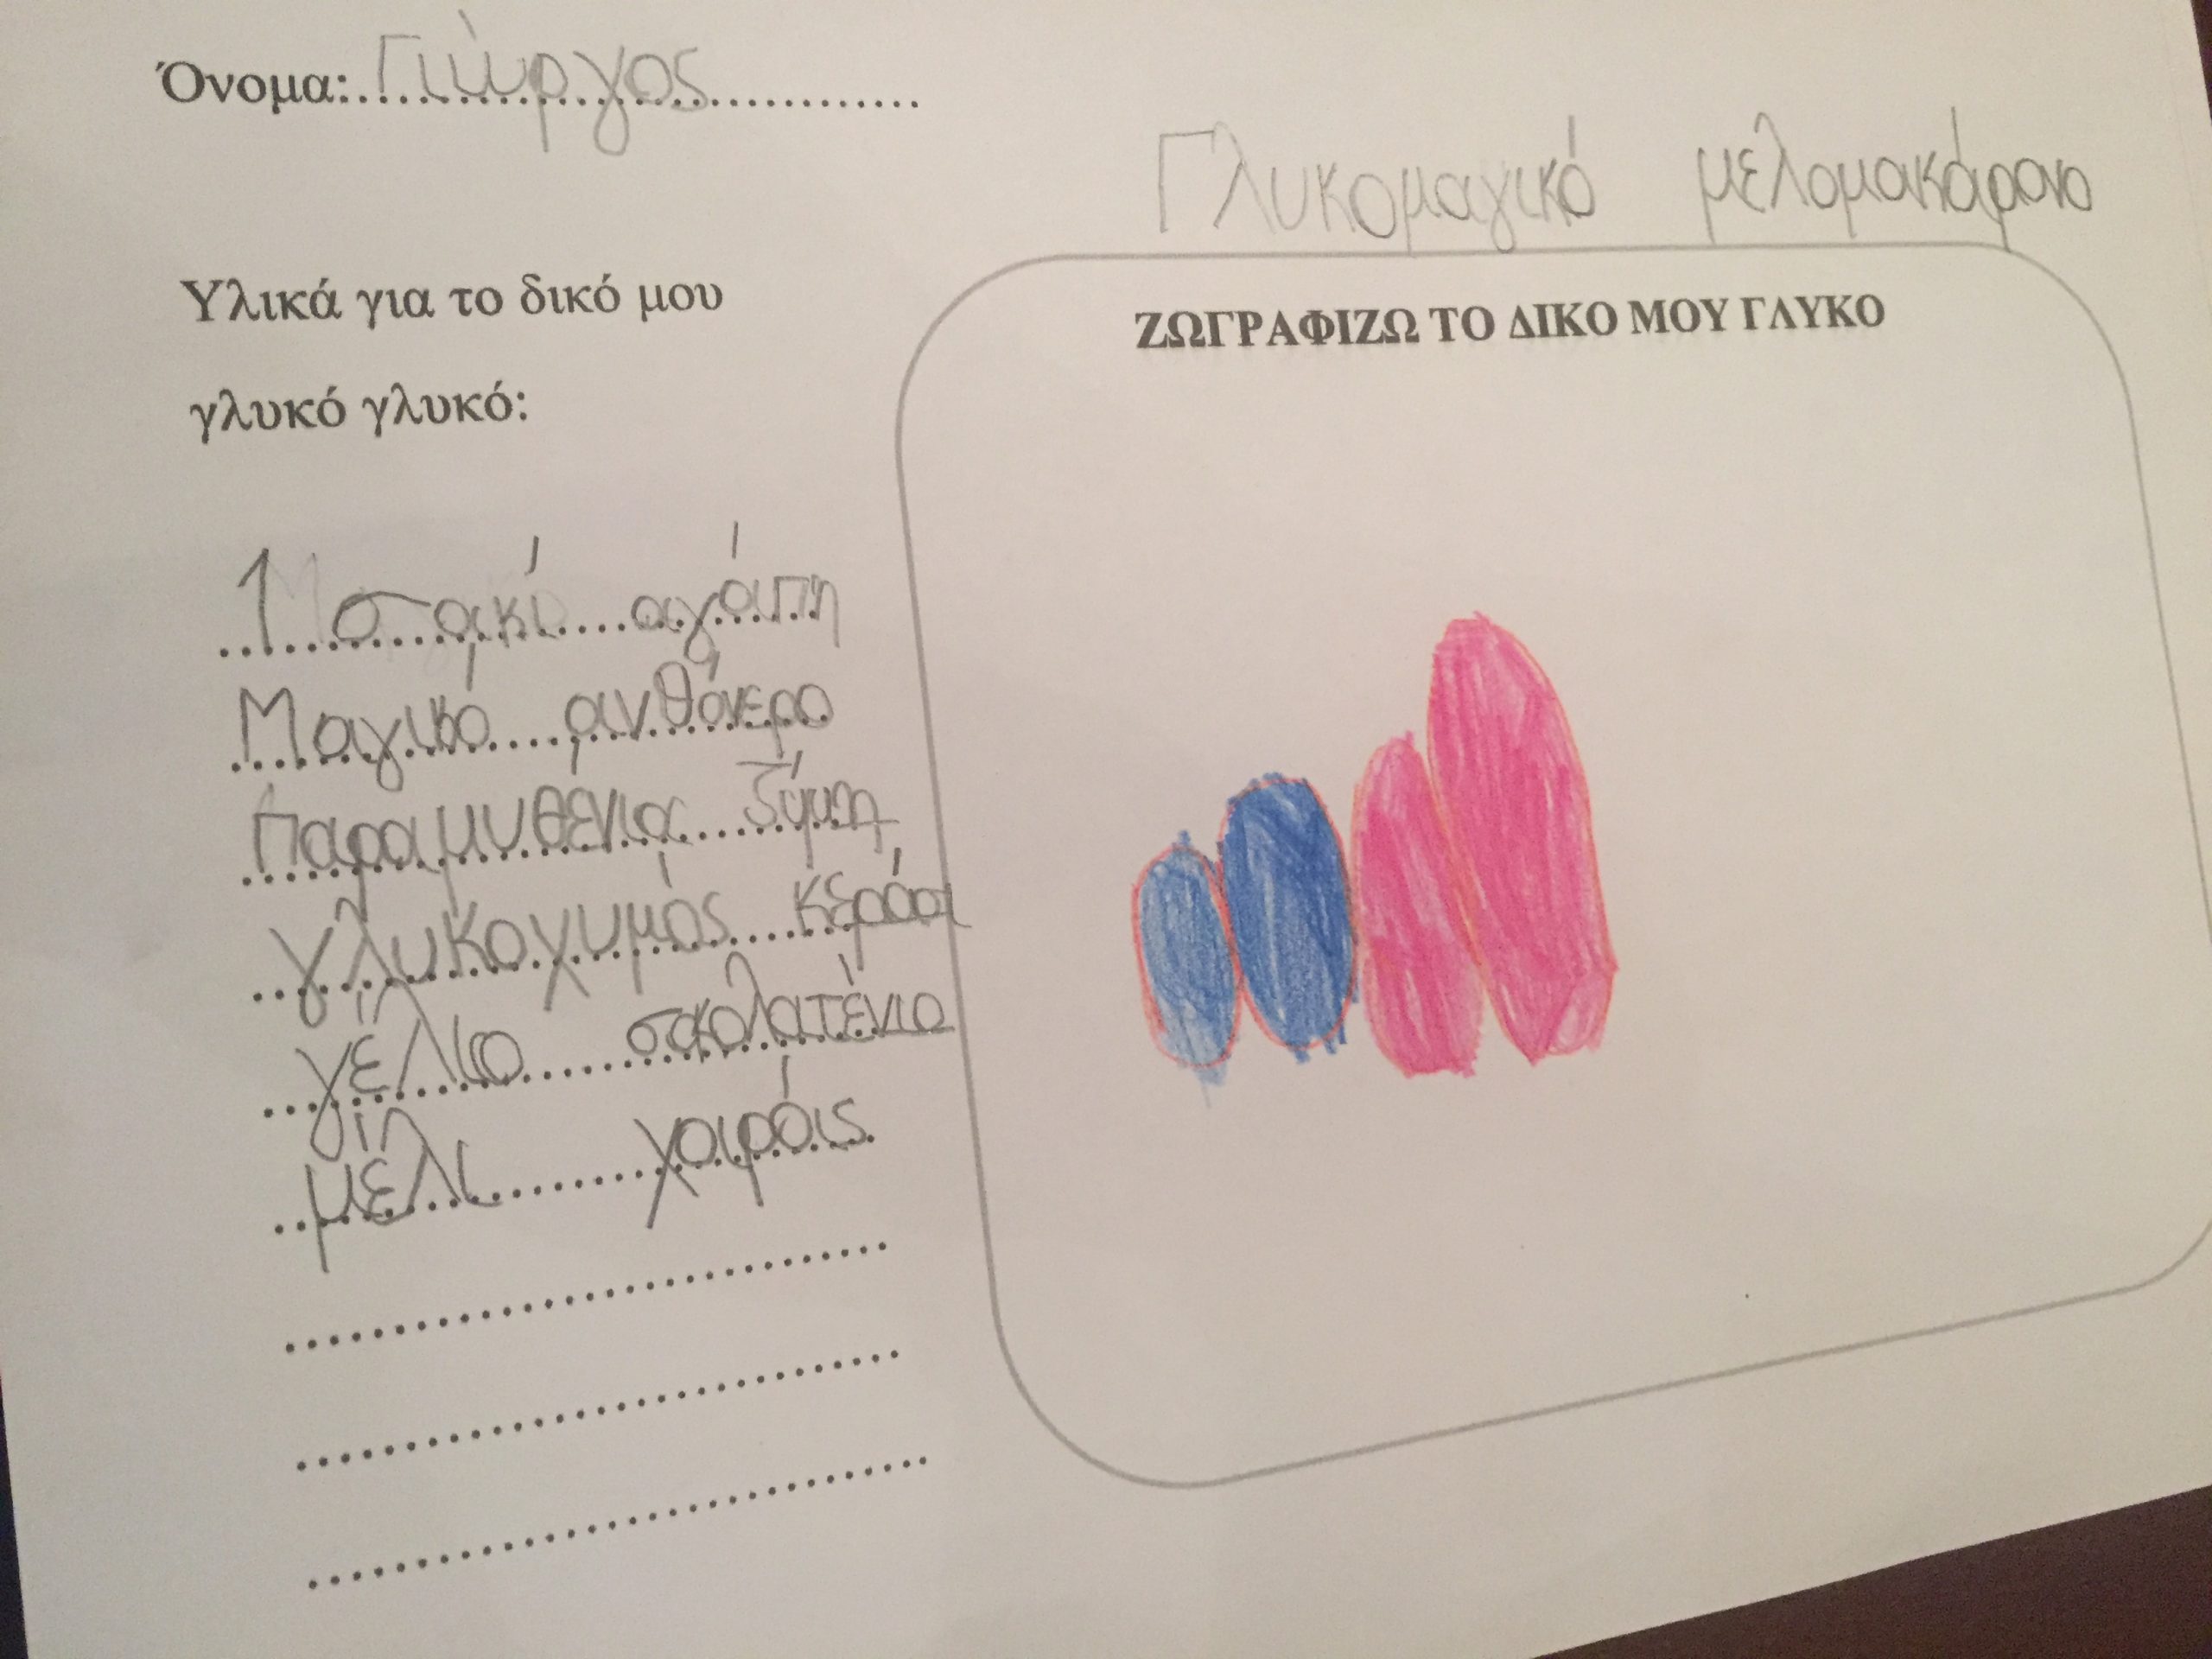 Όνομα: Γιώργος
Γλυκομαγικό μελομακάρονο
Υλικά για το δικό μου
γλυκό γλυκό:
1 σακί αγάπη
Μαγικό ανθόνερο
Παραμυθένια ζύμη
γλυκοχυμός κεράσι
γέλιο σοκολατένιο
μέλι χαράς
ΖΩΓΡΑΦΙΖΩ ΤΟ ΔΙΚΟ ΜΟΥ ΓΛΥΚΟ